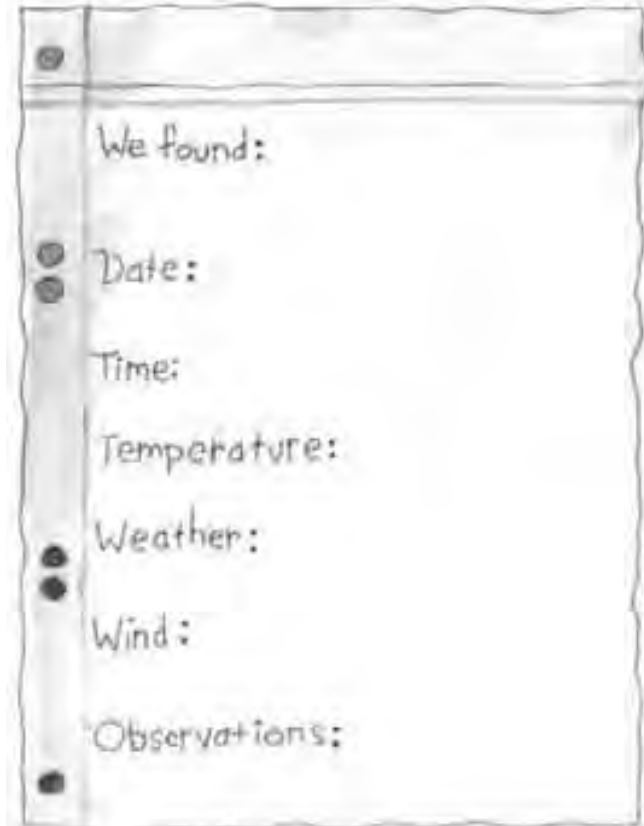 We found:
Date:
Time:
Temperature:
Weather:
Wind:
Observations: